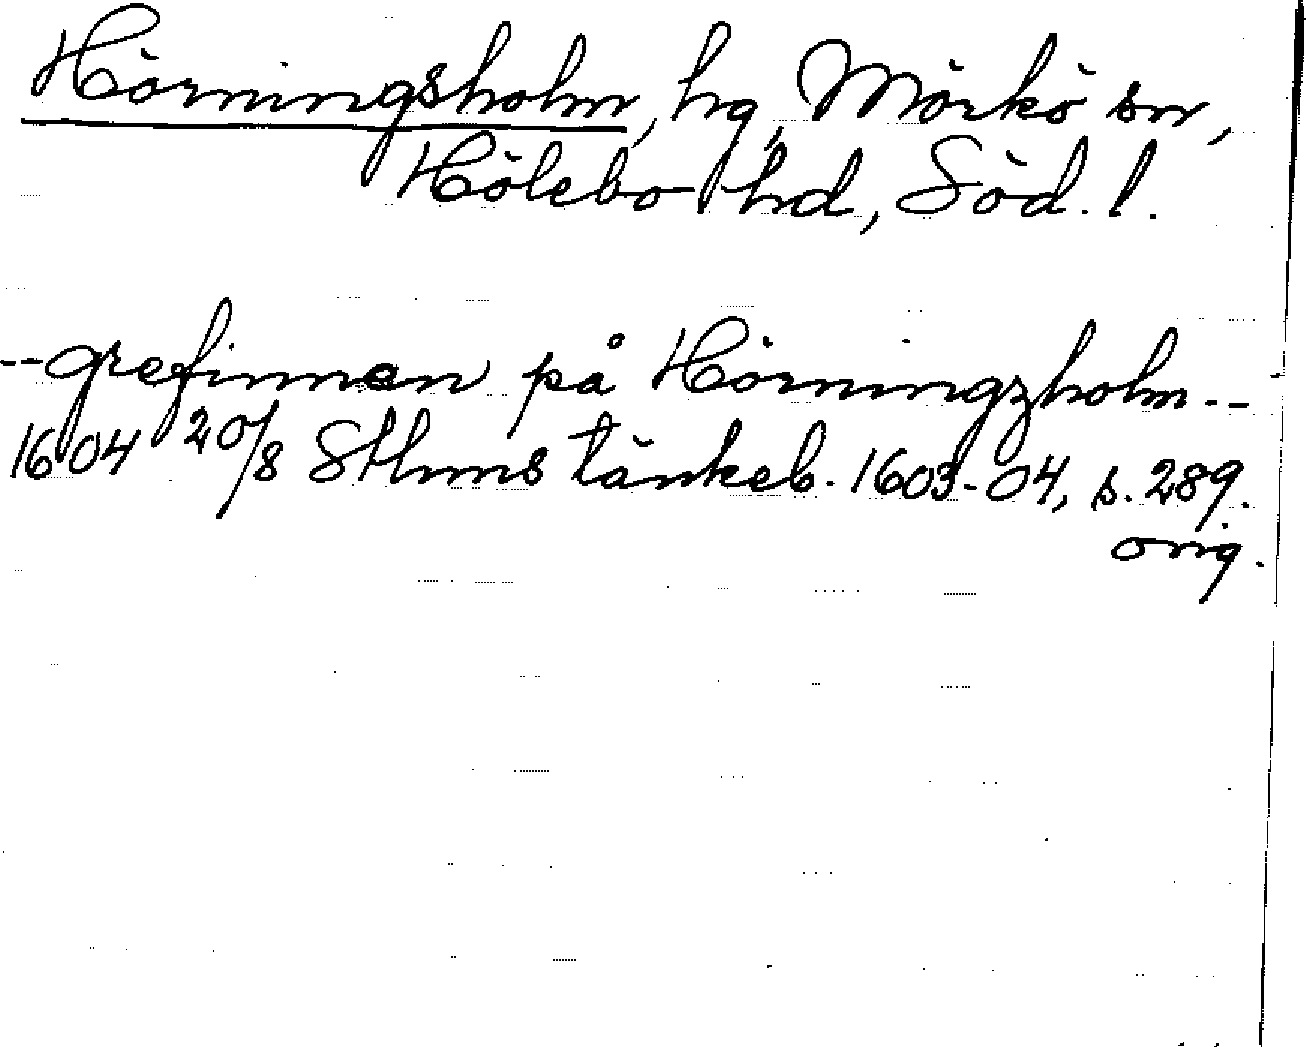 Hörningsholm, hg, Mörkö sn,
Hölebo hd, Söd. l.
-- grefinnan på Hörningzholm --
1604 20/8 Sthms tänkeb. 1603-04, s. 289.
orig.